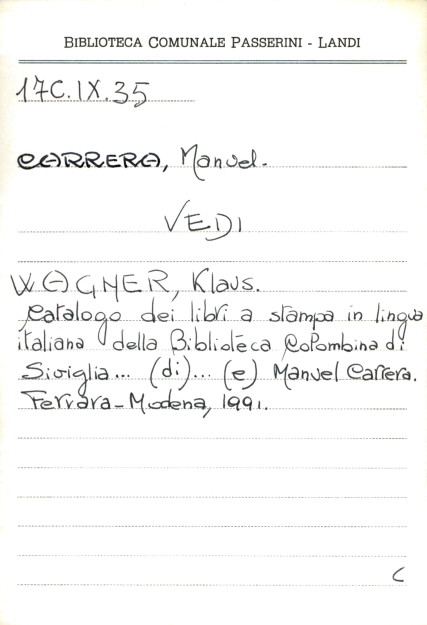 BIBLIOTECA COMUNALE PASSERINI - LANDI
17C.IX.35
CARRERA, Manuel.
VEDI
WAGNER, Klaus.
Catalogo dei libri a stampa in lingua
italiana della Biblioteca Colombina di
Siviglia... (di)... (e) Manuel Carrera.
Ferrara-Modena, 1991.
C